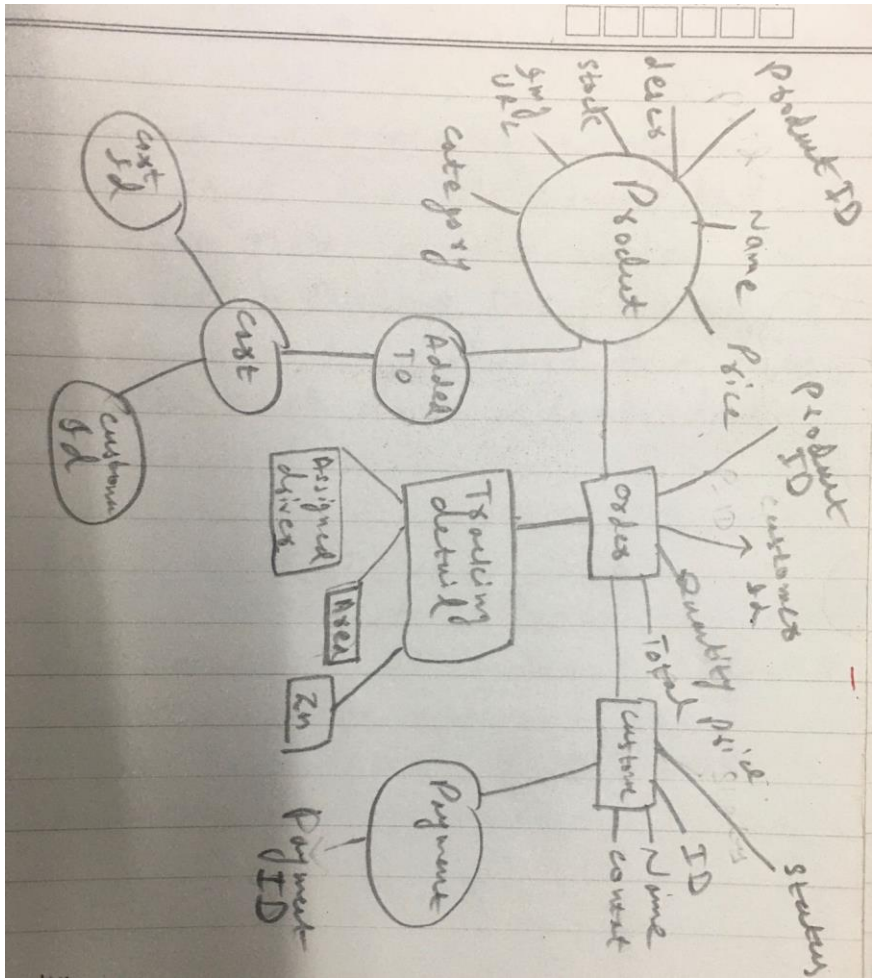 Product ID
Name
Price
descr
stock
Img
URL
category
Product
Added
To
Cart
Cart
Id
Customer
Id
Order
Product
ID
Customer
Id
Quantity
Total Price
Tracking
details
Assigned
driver
Area
Custome
Status
ID
Name
Contact
Payment
Payment
ID